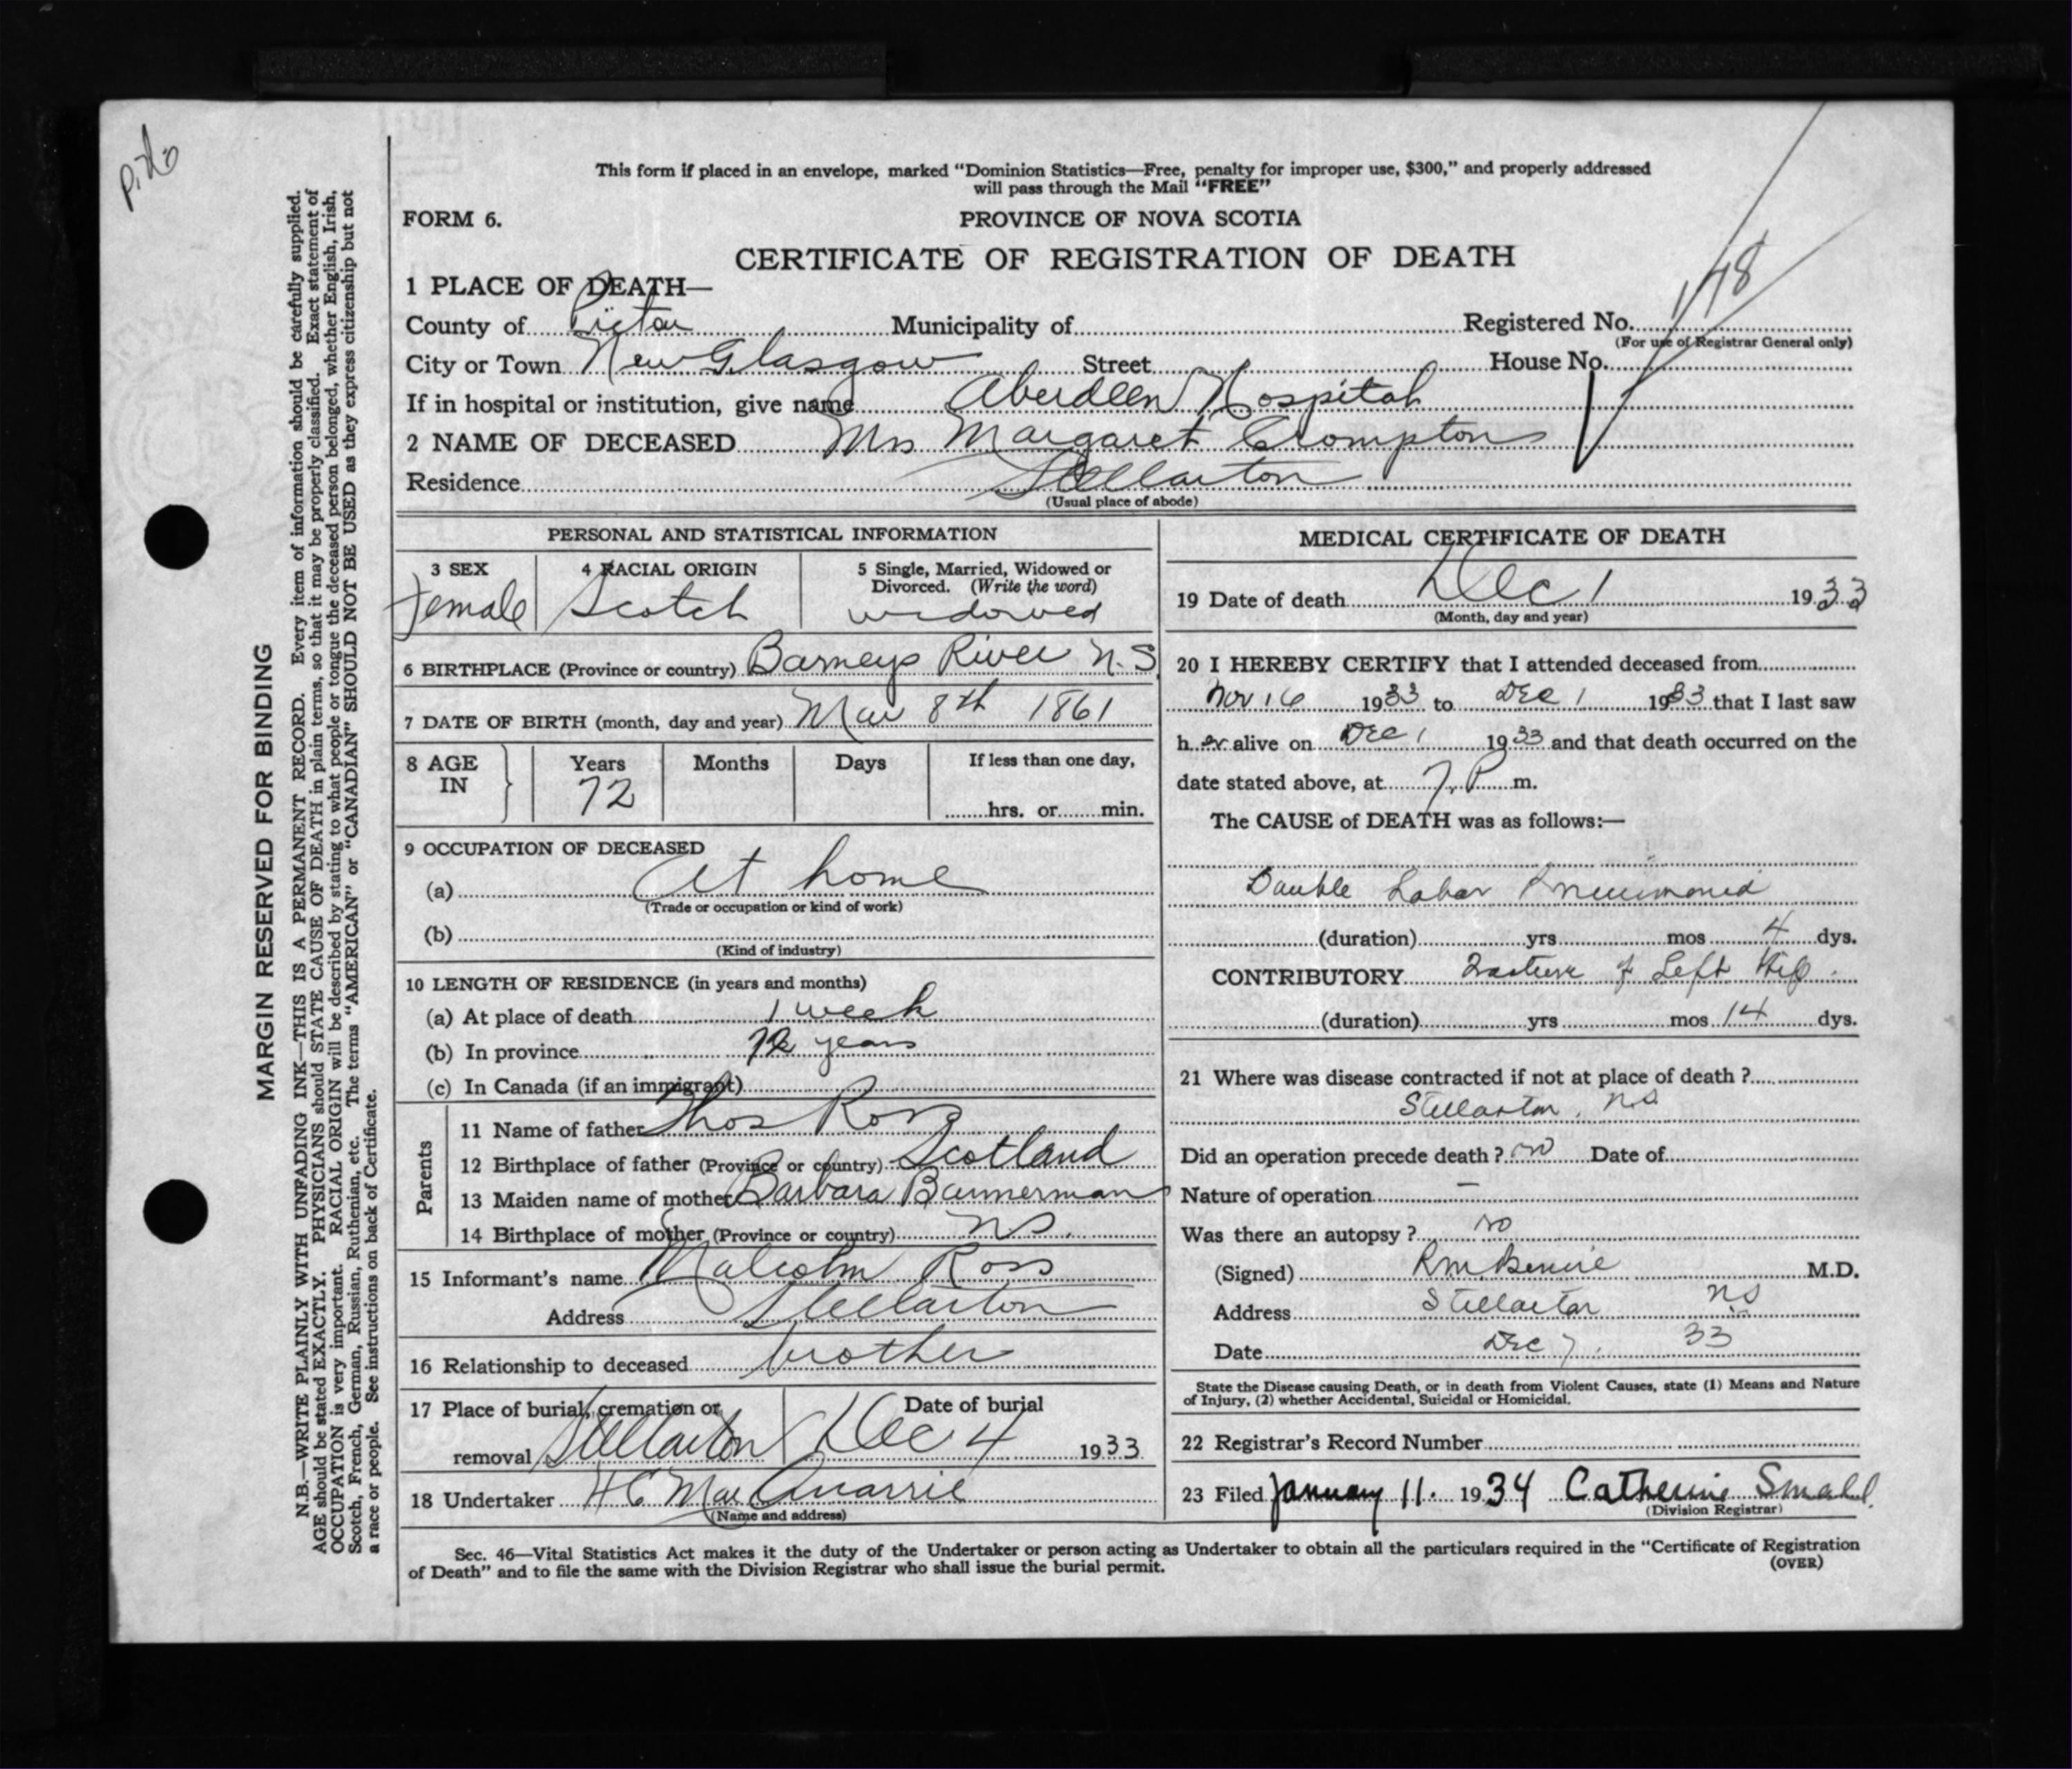 This form if placed in an envelope, marked “Dominion Statistics—Free, penalty for improper use, $300,” and properly addressed
will pass through the Mail “FREE”
FORM 6.
PROVINCE OF NOVA SCOTIA
CERTIFICATE OF REGISTRATION OF DEATH
1 PLACE OF DEATH—
148
County of Pictou Municipality of Registered No.
(For use of Registrar General only)
City or Town New Glasgow Street House No.
If in hospital or institution, give name Aberdeen Hospital
2 NAME OF DECEASED Mrs Margaret Crompton
Residence Stellarton
(Usual place of abode)
PERSONAL AND STATISTICAL INFORMATION
3 SEX
Female
4 RACIAL ORIGIN
Scotch
5 Single, Married, Widowed or
Divorced. (Write the word)
widowed
6 BIRTHPLACE (Province or country) Barneys River N.S
7 DATE OF BIRTH (month, day and year) Mar 8th 1861
8 AGE
IN
Years
72
Months
Days
If less than one day,
hrs. or min.
9 OCCUPATION OF DECEASED
(a) At home
(Trade or occupation or kind of work)
(b)
(Kind of industry)
10 LENGTH OF RESIDENCE (in years and months)
(a) At place of death 1 week
(b) In province 72 years
(c) In Canada (if an immigrant)
Parents
11 Name of father Thos Ross
12 Birthplace of father (Province or country) Scotland
13 Maiden name of mother Barbara Bannerman
14 Birthplace of mother (Province or country) N.S.
15 Informant's name Malcolm Ross
Address Stellarton
16 Relationship to deceased brother
17 Place of burial, cremation or
removal Stellarton
Date of burial
Dec 4 1933
18 Undertaker H C MacQuarrie
(Name and address)
MEDICAL CERTIFICATE OF DEATH
19 Date of death Dec 1 1933
(Month, day and year)
20 I HEREBY CERTIFY that I attended deceased from
Nov 16 1933 to Dec 1 1933 that I last saw
her alive on Dec 1 1933 and that death occurred on the
date stated above, at 7. P m.
The CAUSE of DEATH was as follows:—
Double Lobar Pneumonia
(duration) yrs mos 4 dys.
CONTRIBUTORY Fracture of Left Hip.
(duration) yrs mos 14 dys.
21 Where was disease contracted if not at place of death ?
Stellarton, N.S
Did an operation precede death ? no Date of
Nature of operation –
Was there an autopsy ? no
(Signed) M.D.
Address Stellarton NS
Date Dec 7. 33
State the Disease causing Death, or in death from Violent Causes, state (1) Means and Nature
of Injury, (2) whether Accidental, Suicidal or Homicidal.
22 Registrar's Record Number
23 Filed January 11. 1934 Catherine Small.
(Division Registrar)
Sec. 46—Vital Statistics Act makes it the duty of the Undertaker or person acting as Undertaker to obtain all the particulars required in the “Certificate of Registration
of Death” and to file the same with the Division Registrar who shall issue the burial permit.
(OVER)
MARGIN RESERVED FOR BINDING
N.B.—WRITE PLAINLY WITH UNFADING INK—THIS IS A PERMANENT RECORD. Every item of information should be carefully supplied.
AGE should be stated EXACTLY. PHYSICIANS should STATE CAUSE OF DEATH in plain terms, so that it may be properly classified. Exact statement of
OCCUPATION is very important. RACIAL ORIGIN will be described by stating to what people or tongue the deceased person belonged, whether English, Irish,
Scotch, French, German, Russian, Ruthenian, etc. The terms “AMERICAN” or “CANADIAN” SHOULD NOT BE USED as they express citizenship but not
a race or people. See instructions on back of Certificate.